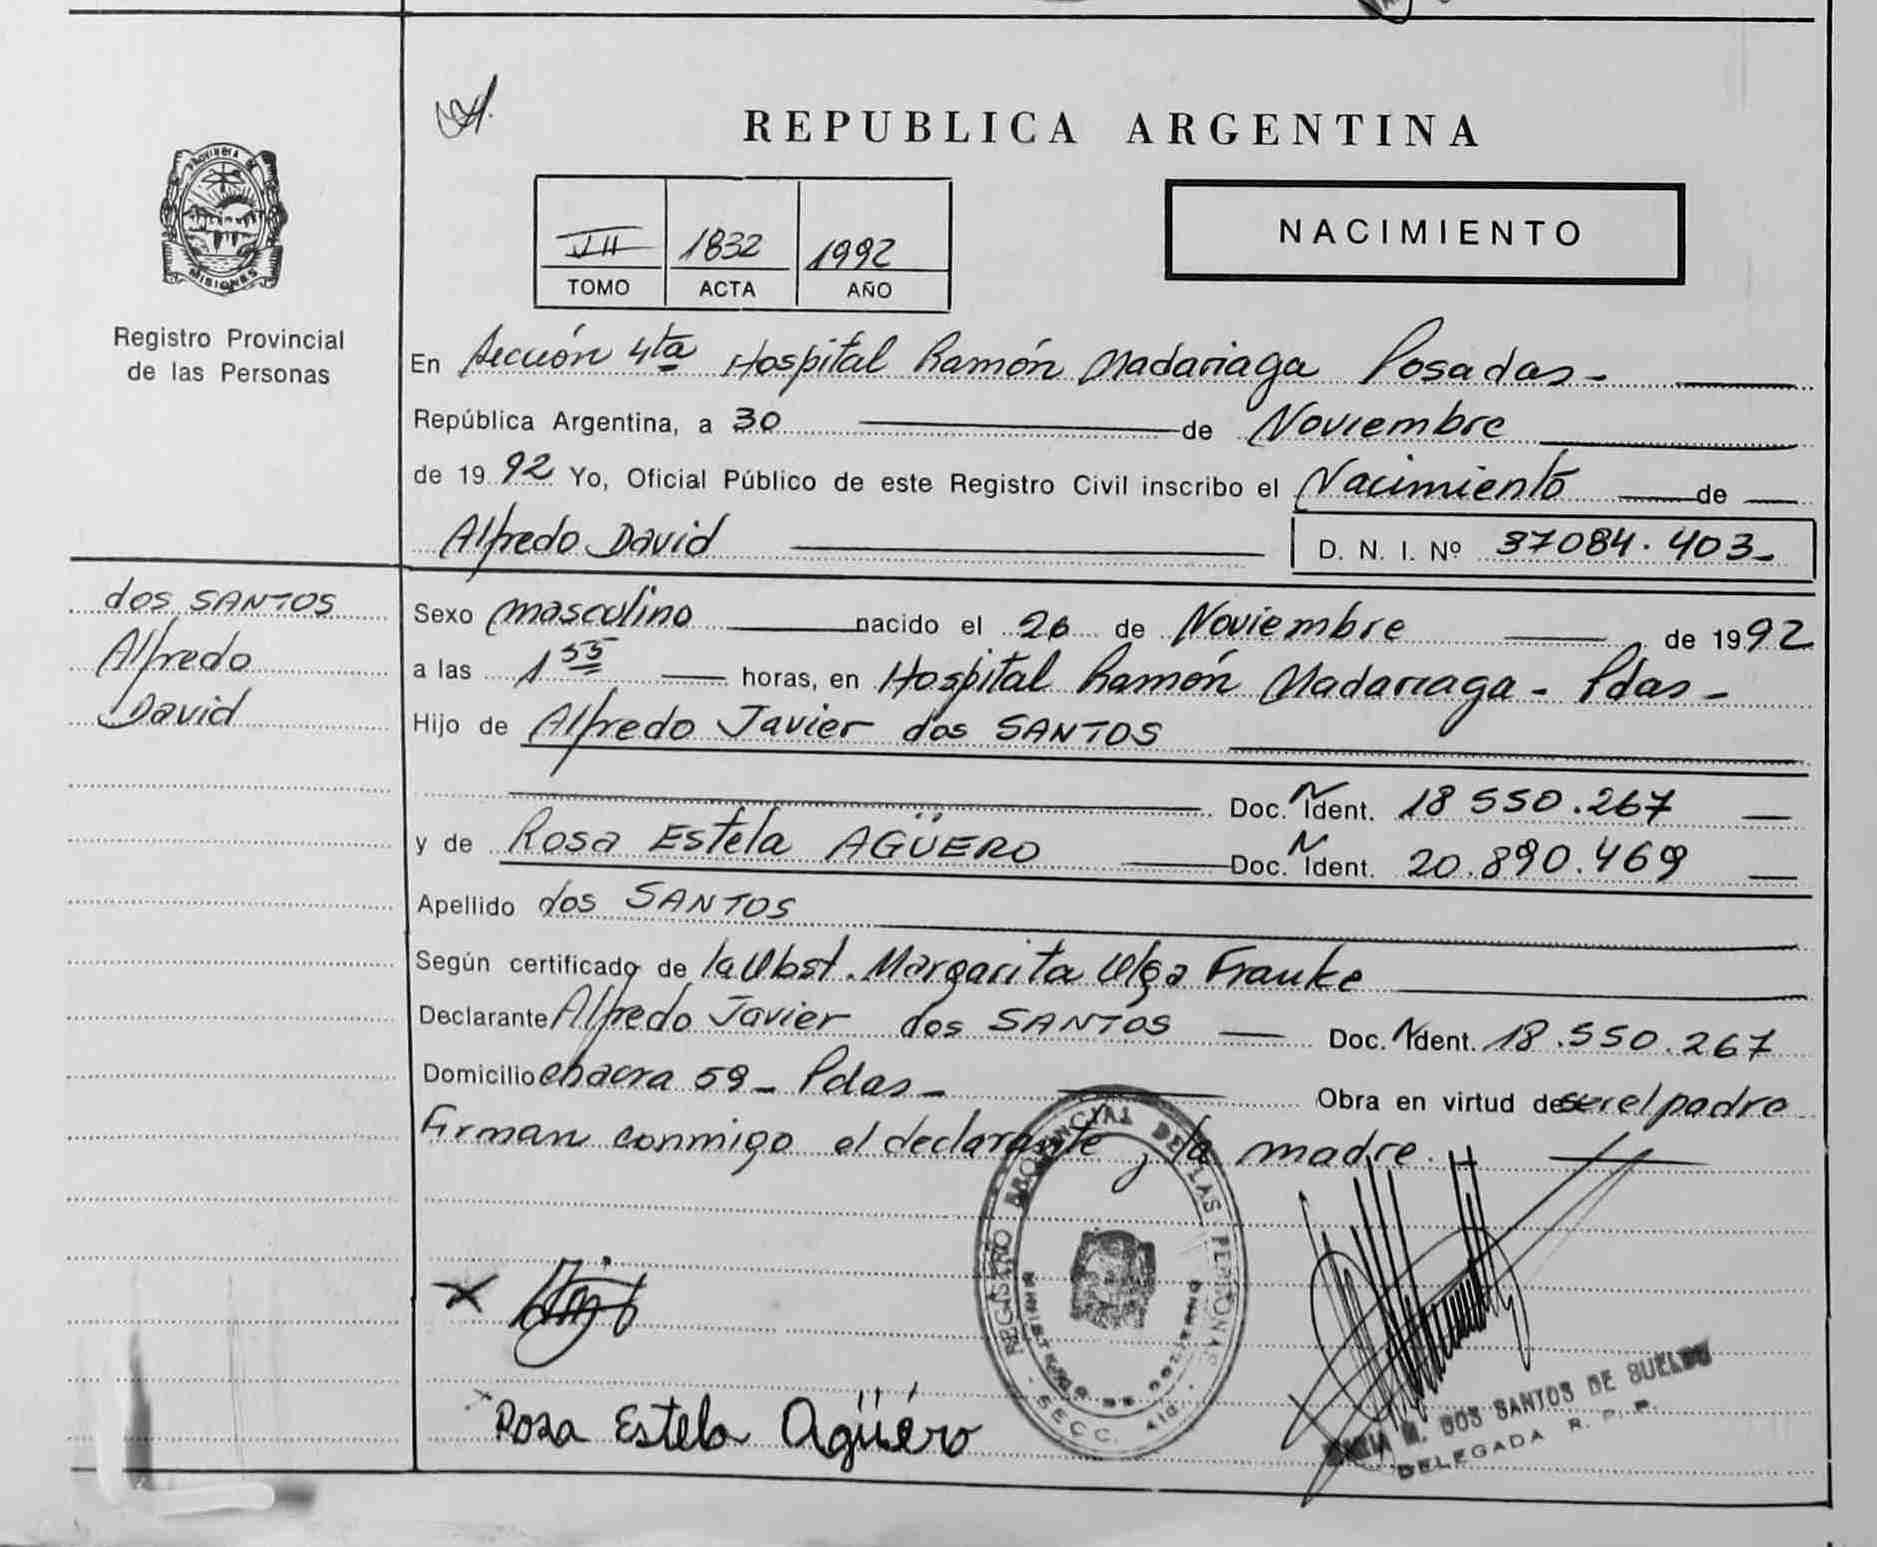 REPUBLICA ARGENTINA
PROVINCIA DE
MISIONES
Registro Provincial
de las Personas
NACIMIENTO
VII 1832 1992
TOMO ACTA AÑO
En Sección 4ta Hospital Ramón Madariaga Posadas -
República Argentina, a 30 de Noviembre
de 1992 Yo, Oficial Público de este Registro Civil inscribo el Nacimiento de
Alfredo David D. N. I. Nº 37084.403-
dos SANTOS
Alfredo
David
Sexo masculino nacido el 26 de Noviembre de 1992
a las 1 55 horas, en Hospital Ramón Madariaga - Pdas -
Hijo de Alfredo Javier dos SANTOS
Doc. N Ident. 18 550.267
y de Rosa Estela AGÜERO Doc. N Ident. 20.890.469
Apellido dos SANTOS
Según certificado de la Obst. Margarita Olga Franke
Declarante Alfredo Javier dos SANTOS Doc. N Ident. 18.550.267
Domicilio chacra 59 - Pdas - Obra en virtud de ser el padre
Firman conmigo el declarante y la madre.
REGISTRO PROVINCIAL DE LAS PERSONAS
MINISTERIO DE GOBIERNO
SECC. 4ta
Rosa Estela Agüero
M. DOS SANTOS DE SUELDO
DELEGADA R. P. P.